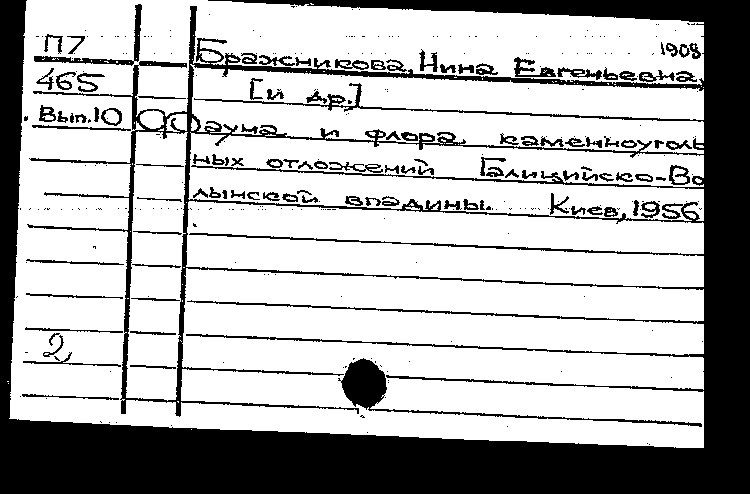 1908
П7 Бражникова, Нина Евгеньевна,
465 [и др.]
Вып.10 Фауна и флора каменноуголь
ных отложений Галицийско-Во
лынской впадины. Киев, 1956
2